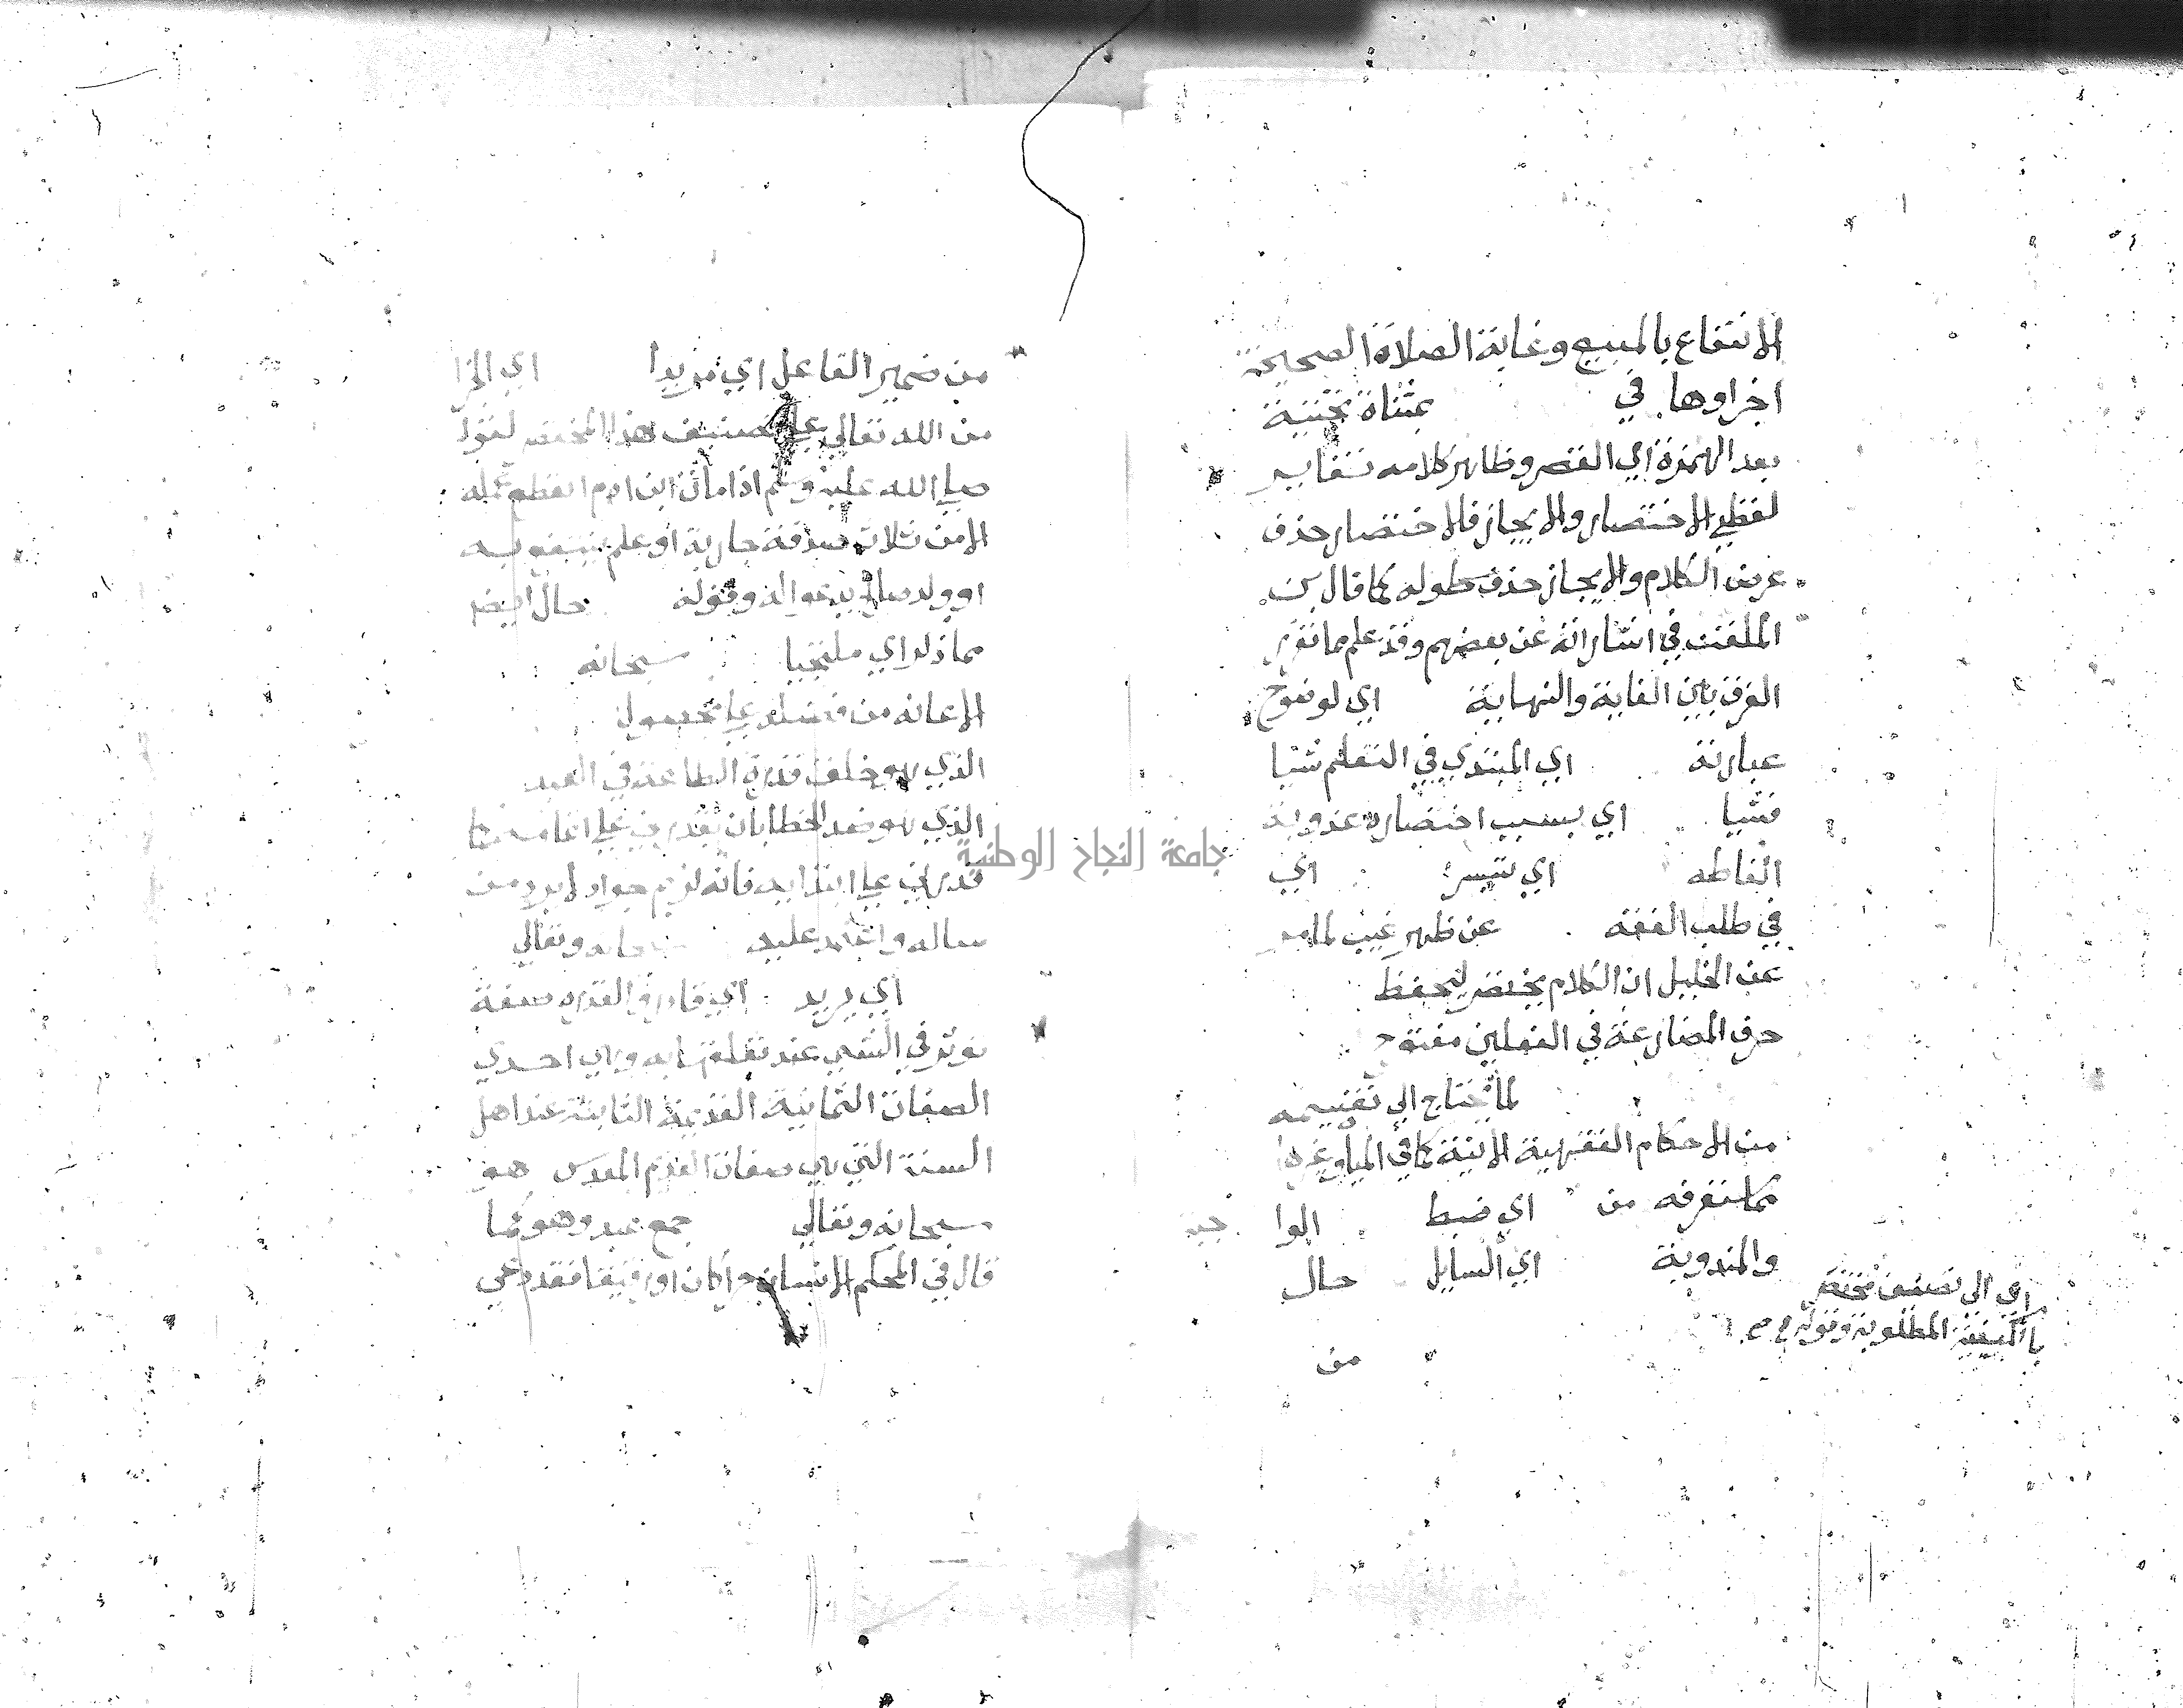 الانتفاع بالمبيع وغاية الصلاة الصحيحة
اجزاوها في بمثناة تحتية
بعد الهمزة اي القصر وظاهر كلامه تغاير
لفظي الاختصار والايجاز فالاختصار حذف
عرض الكلام والايجاز حذف طوله كما قال بن
الملقن في اشاراته عن بعضهم وقد علم مما تقرر
الفرق بين الغاية والنهاية اي لوضوح
عبارته اي المبتدي في التعلم شيا
فشيا اي بسبب اختصاره عذوبة
الفاظه اي يتيسر اي
في طلب الفقه عن ظهر غيب لما مر
عن الخليل ان الكلام يختصر ليحفظ
حرف المضارعة في الفعلين مفتوح
لما يحتاج الي تقسيمه
من الاحكام الفقهية الاتية كما في المياه وغيرها
مما ستعرفه من اي ضبط الوا جبة
والمندوبة اي السايل حال
اي الى تصنيف مختصر
بالكيفية المطلوبة وقوله
من
من ضمير الفاعل اي مريدا اي الجزا
من الله تعالي علي تصنيف هذا المختصر لقوله
صلي الله عليه وسلم اذا مات ابن ادم انقطع عمله
الا من ثلاث صدقة جارية او علم ينتفع به
او ولد صالح يدعو له وقوله حال ايضا
مما ذكر اي ملتجيا سبحانه
الاعانة من فضله علي حصول
الذي هو خلق قدرة الطاعة في العبد
الذي هو ضد الخطا بان يقدرني علي اتمامه كما
قدرني علي ابتدايه فانه كريم جواد لا يرد من
ساله واعتمد عليه سبحانه وتعالي
اي يريد اي قادر والقدرة صفة
توثر في الشي عند تعلقها به وهي احدي
الصفات الثمانية القديمة الثابتة عند اهل
السنة التي هي صفات القديم المقدس هو
سبحانه وتعالي جمع عبد وهو كما
قال في المحكم الانسان حرا كان او رقيقا فقد دعي
جامعة النجاح الوطنية